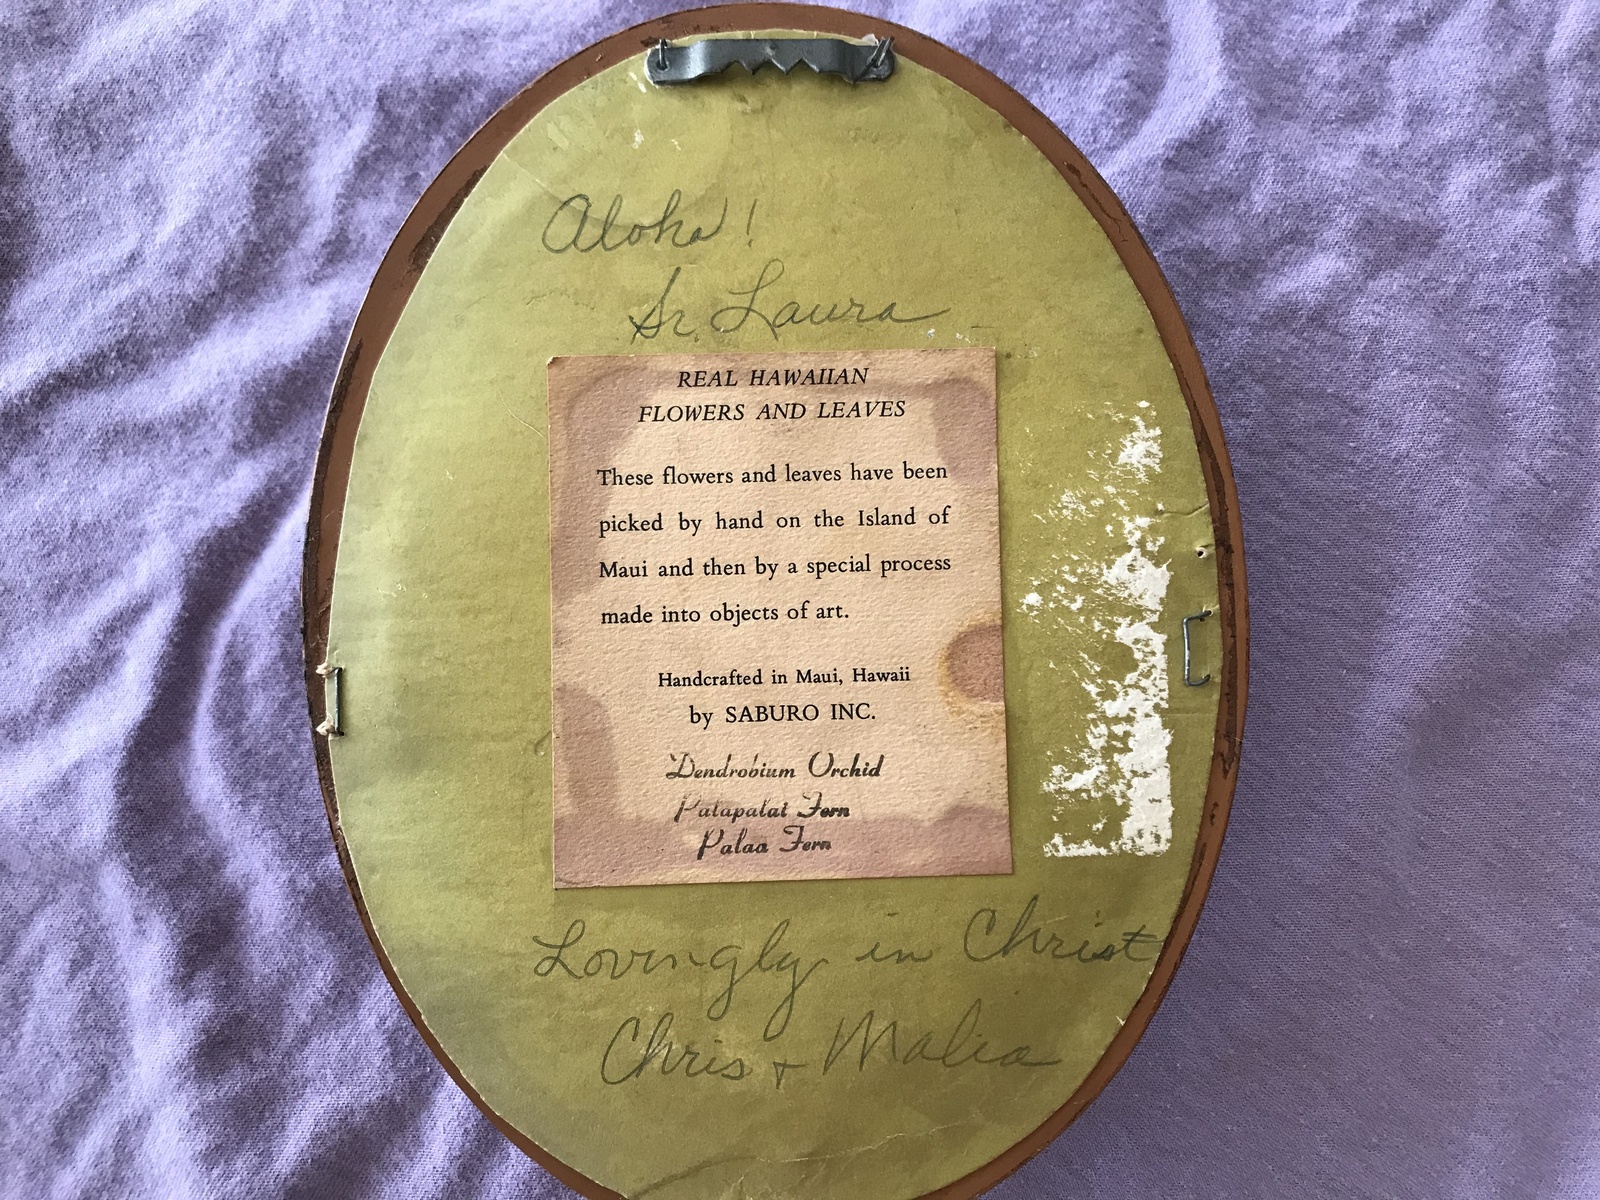 Aloha!
Sr. Laura
REAL HAWAIIAN
FLOWERS AND LEAVES
These flowers and leaves have been
picked by hand on the Island of
Maui and then by a special process
made into objects of art.
Handcrafted in Maui, Hawaii
by SABURO INC.
Dendrobium Orchid
Patapalai Fern
Palaa Fern
Lovingly in Christ
Chris + Malia